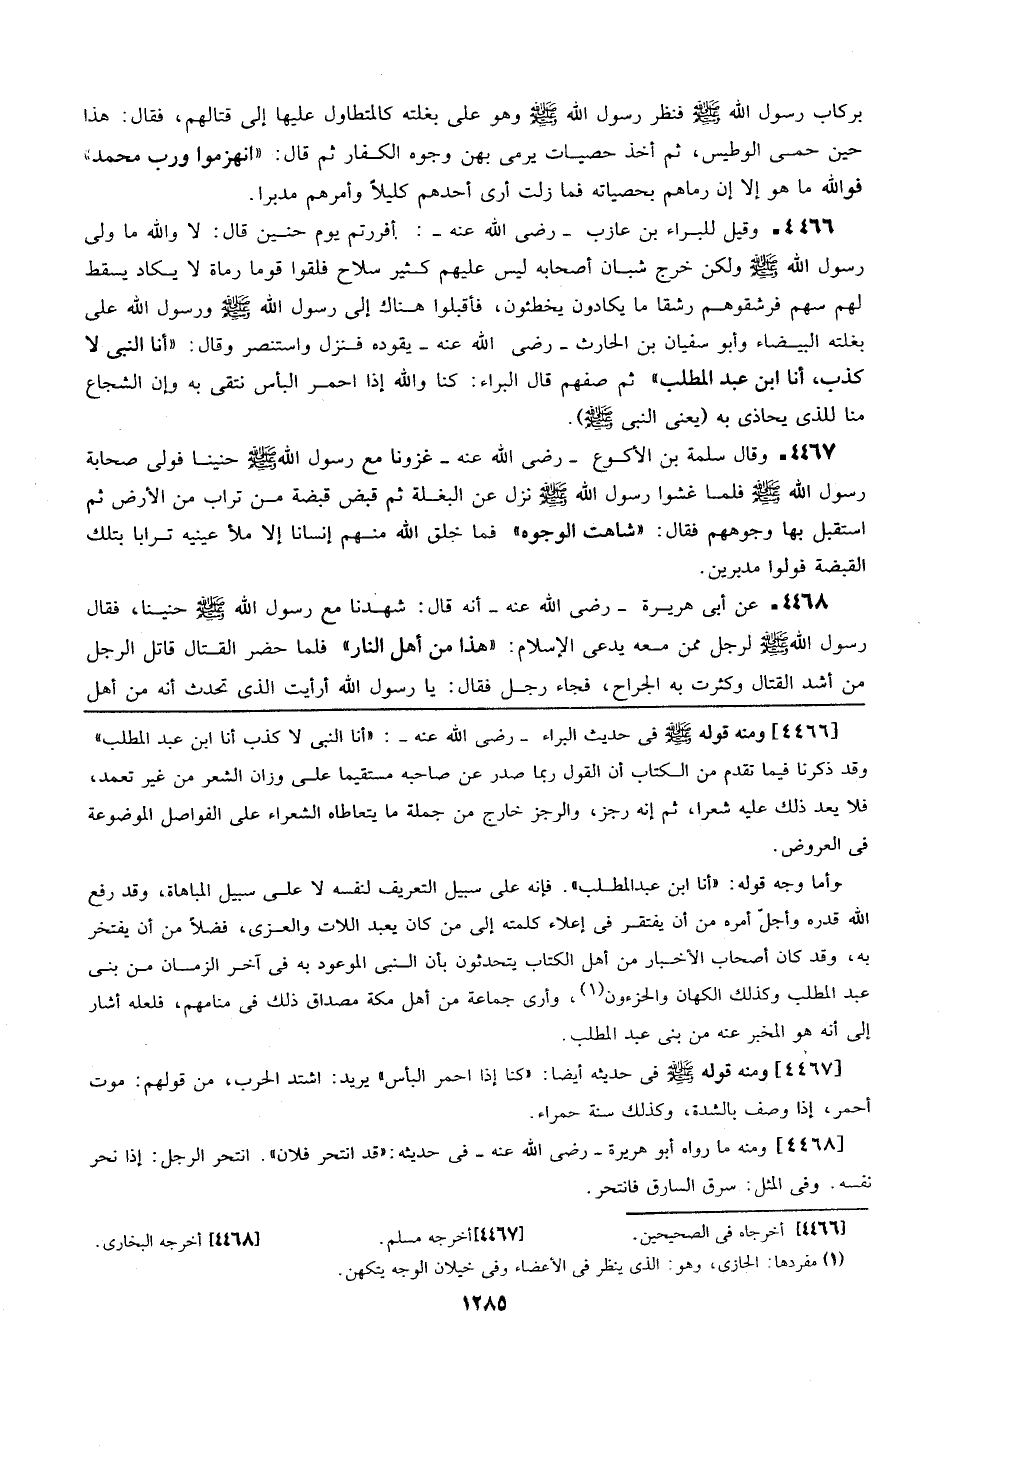 بركاب رسول الله ﷺ فنظر رسول الله ﷺ وهو على بغلته كالمتطاول عليها إلى قتالهم، فقال: هذا
حين حمى الوطيس، ثم أخذ حصيات يرمى بهن وجوه الكفار ثم قال: «انهزموا ورب محمد»
فوالله ما هو إلا إن رماهم بحصياته فما زلت أرى أحدهم كليلاً وأمرهم مدبرا.
٤٤٦٦. وقيل للبراء بن عازب ـ رضى الله عنه ـ : أفررتم يوم حنين قال: لا والله ما ولى
رسول الله ﷺ ولكن خرج شبان أصحابه ليس عليهم كثير سلاح فلقوا قوما رماة لا يكاد يسقط
لهم سهم فرشقوهم رشقا ما يكادون يخطئون، فأقبلوا هناك إلى رسول الله ﷺ ورسول الله على
بغلته البيضاء وأبو سفيان بن الحارث ـ رضى الله عنه ـ يقوده فنزل واستنصر وقال: «أنا النبى لا
كذب، أنا ابن عبد المطلب» ثم صفهم قال البراء: كنا والله إذا احمر البأس نتقى به وإن الشجاع
منا للذى يحاذى به (يعنى النبى ﷺ).
٤٤٦٧. وقال سلمة بن الأكوع ـ رضى الله عنه ـ غزونا مع رسول الله ﷺ حنينا فولى صحابة
رسول الله ﷺ فلما غشوا رسول الله ﷺ نزل عن البغلة ثم قبض قبضة من تراب من الأرض ثم
استقبل بها وجوههم فقال: «شاهت الوجوه» فما خلق الله منهم إنسانا إلا ملأ عينيه ترابا بتلك
القبضة فولوا مدبرين.
٤٤٦٨. عن أبى هريرة ـ رضى الله عنه ـ أنه قال: شهدنا مع رسول الله ﷺ حنينا، فقال
رسول الله ﷺ لرجل ممن معه يدعى الإسلام: «هذا من أهل النار» فلما حضر القتال قاتل الرجل
من أشد القتال وكثرت به الجراح، فجاء رجل فقال: يا رسول الله أرأيت الذى تحدث أنه من أهل
[٤٤٦٦] ومنه قوله ﷺ فى حديث البراء ـ رضى الله عنه ـ : «أنا النبى لا كذب أنا ابن عبد المطلب»
وقد ذكرنا فيما تقدم من الكتاب أن القول ربما صدر عن صاحبه مستقيما على وزان الشعر من غير تعمد،
فلا يعد ذلك عليه شعرا، ثم إنه رجز، والرجز خارج من جملة ما يتعاطاه الشعراء على الفواصل الموضوعة
فى العروض.
وأما وجه قوله: «أنا ابن عبدالمطلب». فإنه على سبيل التعريف لنفسه لا على سبيل المباهاة، وقد رفع
الله قدره وأجلّ أمره من أن يفتقر فى إعلاء كلمته إلى من كان يعبد اللات والعزى، فضلاً من أن يفتخر
به، وقد كان أصحاب الأخبار من أهل الكتاب يتحدثون بأن النبى الموعود به فى آخر الزمان من بنى
عبد المطلب وكذلك الكهان والحزءون(١)، وأرى جماعة من أهل مكة مصداق ذلك فى منامهم، فلعله أشار
إلى أنه هو المخبر عنه من بنى عبد المطلب.
[٤٤٦٧] ومنه قوله ﷺ فى حديثه أيضا: «كنا إذا احمر البأس» يريد: اشتد الحرب، من قولهم: موت
أحمر، إذا وصف بالشدة، وكذلك سنة حمراء.
[٤٤٦٨] ومنه ما رواه أبو هريرة ـ رضى الله عنه ـ فى حديثه: «قد انتحر فلان». انتحر الرجل: إذا نحر
نفسه. وفى المثل: سرق السارق فانتحر.
[٤٤٦٦] أخرجاه فى الصحيحين. [٤٤٦٧] أخرجه مسلم. [٤٤٦٨] أخرجه البخارى.
(١) مفردها: الحازى، وهو: الذى ينظر فى الأعضاء وفى خيلان الوجه يتكهن.
١٢٨٥